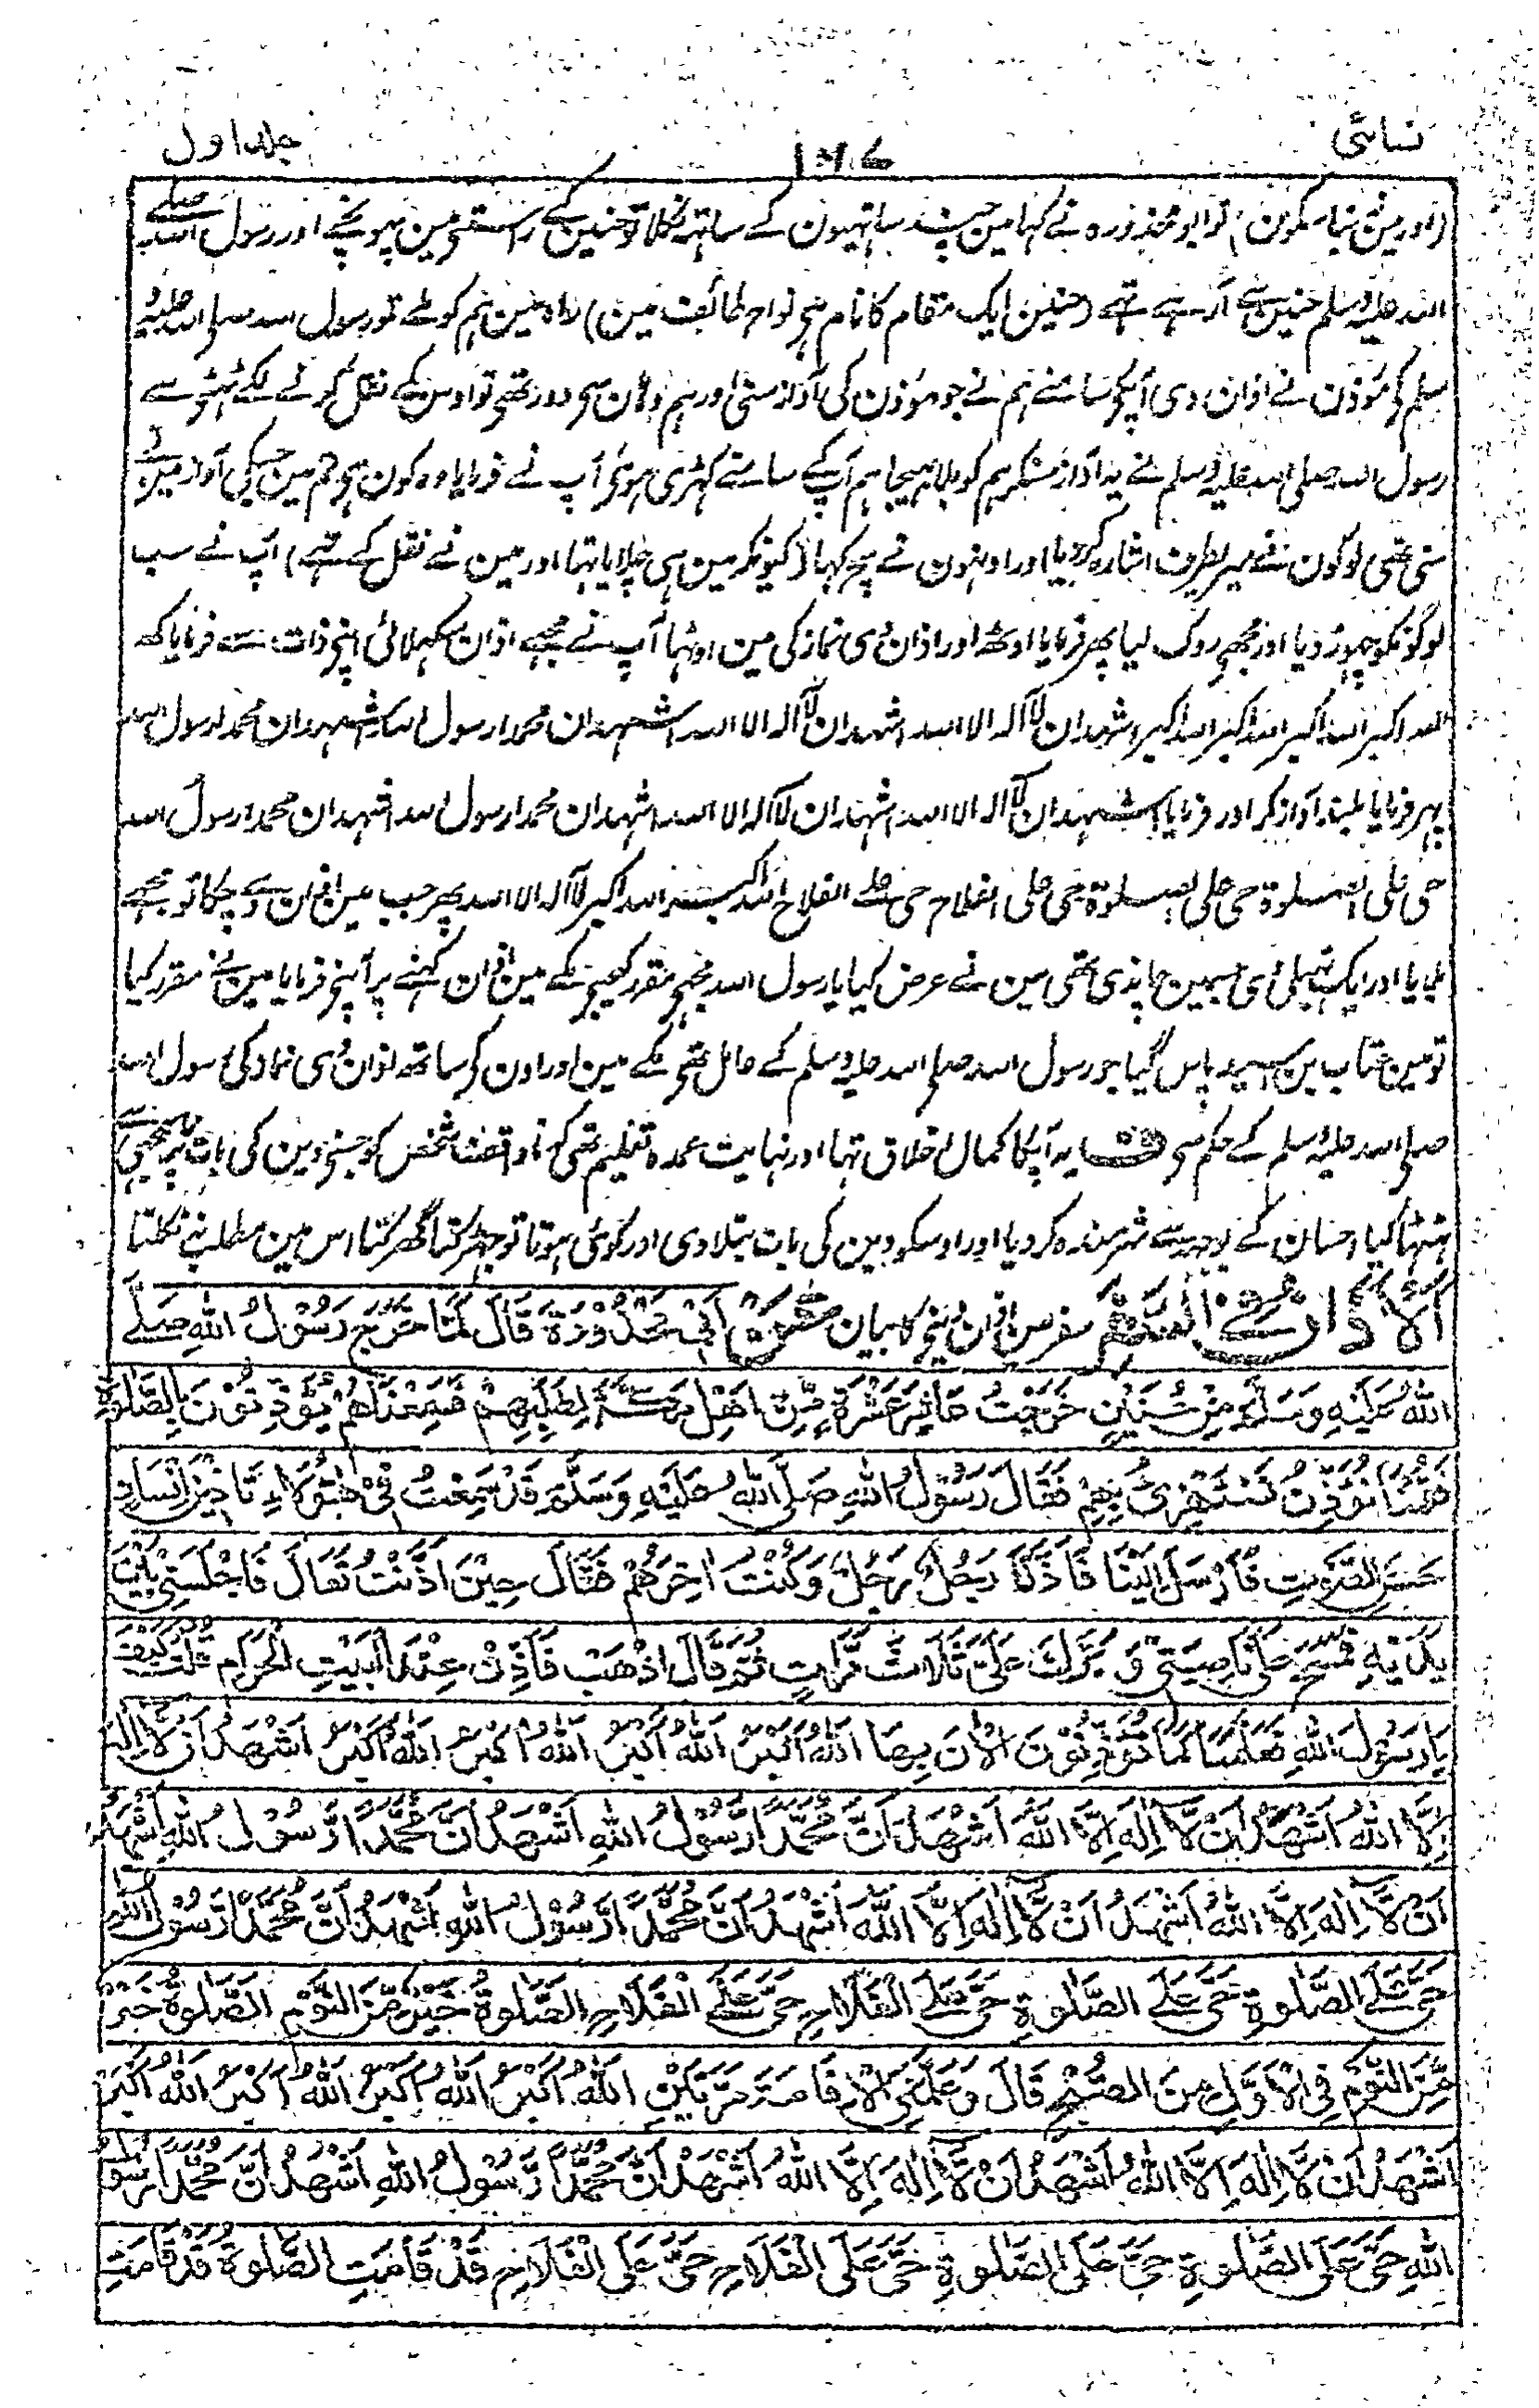 نسائی
جلد اول
(اور مین بتا سکون) تو ابو محذورہ نے کہا مین چند ساتہیون کے ساتہ نکلا تو حنین کے رستے مین پہونچے اور رسول اللہ صلے
اللہ علیہ وسلم حنین سے آرہے تہے (حنین ایک مقام کا نام ہے نواح طائف مین) راہ مین ہم کو ملے تو رسول اللہ صلے اللہ علیہ و
سلم کے موذن نے اذان دی آپکے سامنے ہم نے جو موذن کی آواز سنی اور ہم وہان سے دور تھے تو اوس کے نقل کرنے لگے ٹہٹھے سے
رسول اللہ صلی اللہ علیہ وسلم نے یہ آواز سنکر ہم کو بلا بہیجا ہم آپ کے سامنے کہڑی ہوئے آپ نے فرمایا وہ کون ہے تم مین جسکی آواز مین نے
سنی تھی لوگون نے میریطرف اشارہ کر دیا اور اونہون نے سچ کہا (کیونکہ مین ہی چلایا تہا اور مین نے نقل کے تہے) آپ نے سب
لوگونکو چہوڑ دیا اور مجھے روک لیا پھر فرمایا اوٹھ اور اذان دی نماز کی مین اوٹہا آپ نے مجہے اذان سکہلائی اپنے ذات سے فرمایا کہ
اللہ اکبر اللہ اکبر اللہ اکبر اللہ اکبر اشہد ان لآ الہ الا اللہ اشہد ان لآ الہ الا اللہ اشہد ان محمدا رسول اللہ اشہد ان محمدا رسول اللہ
پہر فرمایا بلند آواز کر اور فرمایا اشہد ان لآ الہ الا اللہ اشہد ان لا الہ الا اللہ اشہد ان محمدا رسول اللہ اشہد ان محمدا رسول اللہ
حی علی الصلوۃ حی علی الصلوۃ حی علی الفلاح حی علے الفلاح اللہ اکبر اللہ اکبر لآ الہ الا اللہ پھر جب مین اذان دے چکا تو مجہے
بلایا اور ایک تہیلی دی جسمین چاندی تھی مین نے عرض کیا یا رسول اللہ مجہے مقرر کیجیے مکے مین اذان کہنے پر آپنے فرمایا مین نے مقرر کیا
تو مین عتاب بن اسید پاس گیا جو رسول اللہ صلے اللہ علیہ وسلم کے عامل تھے مکے مین اور اون کے ساتھ اذان دی نماز کی رسول اللہ
صلے اللہ علیہ وسلم کے حکم سے ف یہ آپکا کمال اخلاق تہا اور نہایت عمدہ تعلیم تھی کہ ناواقف شخص کو جسنے دین کی بات پر
ٹہٹہا کیا احسان کے بوجہ سے شرمندہ کر دیا اور اوسکو دین کی بات بتلا دی اور کوئی ہوتا تو جہڑکتا گھرکتا اس مین مطلب نے نکلتا
اَلْاَذَانُ فِي السَّفَرِ سفر مین اذان دینے کا بیان عَنْ اَبِيْ مَحْذُوْرَةَ قَالَ لَمَّا خَرَجَ رَسُوْلُ اللّٰهِ صَلَّے
اللّٰهُ عَلَيْهِ وَسَلَّمَ مِنْ حُنَيْنٍ خَرَجْتُ عَاشِرَ عَشْرَةٍ مِّنْ اَهْلِ مَكَّةَ نَطْلُبُهُمْ فَسَمِعْنَاهُمْ يُؤَذِّنُوْنَ بِالصَّلٰوةِ
فَقُمْنَا نُؤَذِّنُ نَسْتَهْزِئُ بِهِمْ فَقَالَ رَسُوْلُ اللّٰهِ صَلَّى اللّٰهُ عَلَيْهِ وَسَلَّمَ قَدْ سَمِعْتُ فِيْ هٰؤُلَاءِ تَاْذِيْنَ اِنْسَانٍ
حَسَنِ الصَّوْتِ فَاَرْسَلَ اِلَيْنَا فَاَذَّنَّا رَجُلٌ رَجُلٌ وَكُنْتُ اٰخِرَهُمْ فَقَالَ حِيْنَ اَذَّنْتُ تَعَالَ فَاَجْلَسَنِيْ بَيْنَ
يَدَيْهِ فَمَسَحَ عَلٰى نَاصِيَتِيْ وَ بَرَّكَ عَلَيَّ ثَلَاثَ مَرَّاتٍ ثُمَّ قَالَ اذْهَبْ فَاَذِّنْ عِنْدَ الْبَيْتِ الْحَرَامِ قُلْتُ كَيْفَ
يَا رَسُوْلَ اللّٰهِ فَعَلَّمَنِيْ كَمَا تُؤَذِّنُوْنَ الْاٰنَ بِهَا اَللّٰهُ اَكْبَرُ اَللّٰهُ اَكْبَرُ اَللّٰهُ اَكْبَرُ اَللّٰهُ اَكْبَرُ اَشْهَدُ اَنْ لَّا اِلٰهَ
اِلَّا اللّٰهُ اَشْهَدُ اَنْ لَّا اِلٰهَ اِلَّا اللّٰهُ اَشْهَدُ اَنَّ مُحَمَّدًا رَّسُوْلُ اللّٰهِ اَشْهَدُ اَنَّ مُحَمَّدًا رَّسُوْلُ اللّٰهِ اَشْهَدُ
اَنْ لَّا اِلٰهَ اِلَّا اللّٰهُ اَشْهَدُ اَنْ لَّا اِلٰهَ اِلَّا اللّٰهُ اَشْهَدُ اَنَّ مُحَمَّدًا رَّسُوْلُ اللّٰهِ اَشْهَدُ اَنَّ مُحَمَّدًا رَّسُوْلُ اللّٰهِ
حَيَّ عَلَے الصَّلٰوةِ حَيَّ عَلَے الصَّلٰوةِ حَيَّ عَلَے الْفَلَاحِ حَيَّ عَلَے الْفَلَاحِ الصَّلٰوةُ خَيْرٌ مِّنَ النَّوْمِ الصَّلٰوةُ خَيْرٌ
مِّنَ النَّوْمِ فِي الْاَوَّلِ مِنَ الصُّبْحِ قَالَ وَعَلَّمَنِي الْاِقَامَةَ مَرَّتَيْنِ اَللّٰهُ اَكْبَرُ اَللّٰهُ اَكْبَرُ اَللّٰهُ اَكْبَرُ اَللّٰهُ اَكْبَرُ
اَشْهَدُ اَنْ لَّا اِلٰهَ اِلَّا اللّٰهُ اَشْهَدُ اَنْ لَّا اِلٰهَ اِلَّا اللّٰهُ اَشْهَدُ اَنَّ مُحَمَّدًا رَّسُوْلُ اللّٰهِ اَشْهَدُ اَنَّ مُحَمَّدًا رَّسُوْلُ
اللّٰهِ حَيَّ عَلَى الصَّلٰوةِ حَيَّ عَلَى الصَّلٰوةِ حَيَّ عَلَى الْفَلَاحِ حَيَّ عَلَى الْفَلَاحِ قَدْ قَامَتِ الصَّلٰوةُ قَدْ قَامَتِ